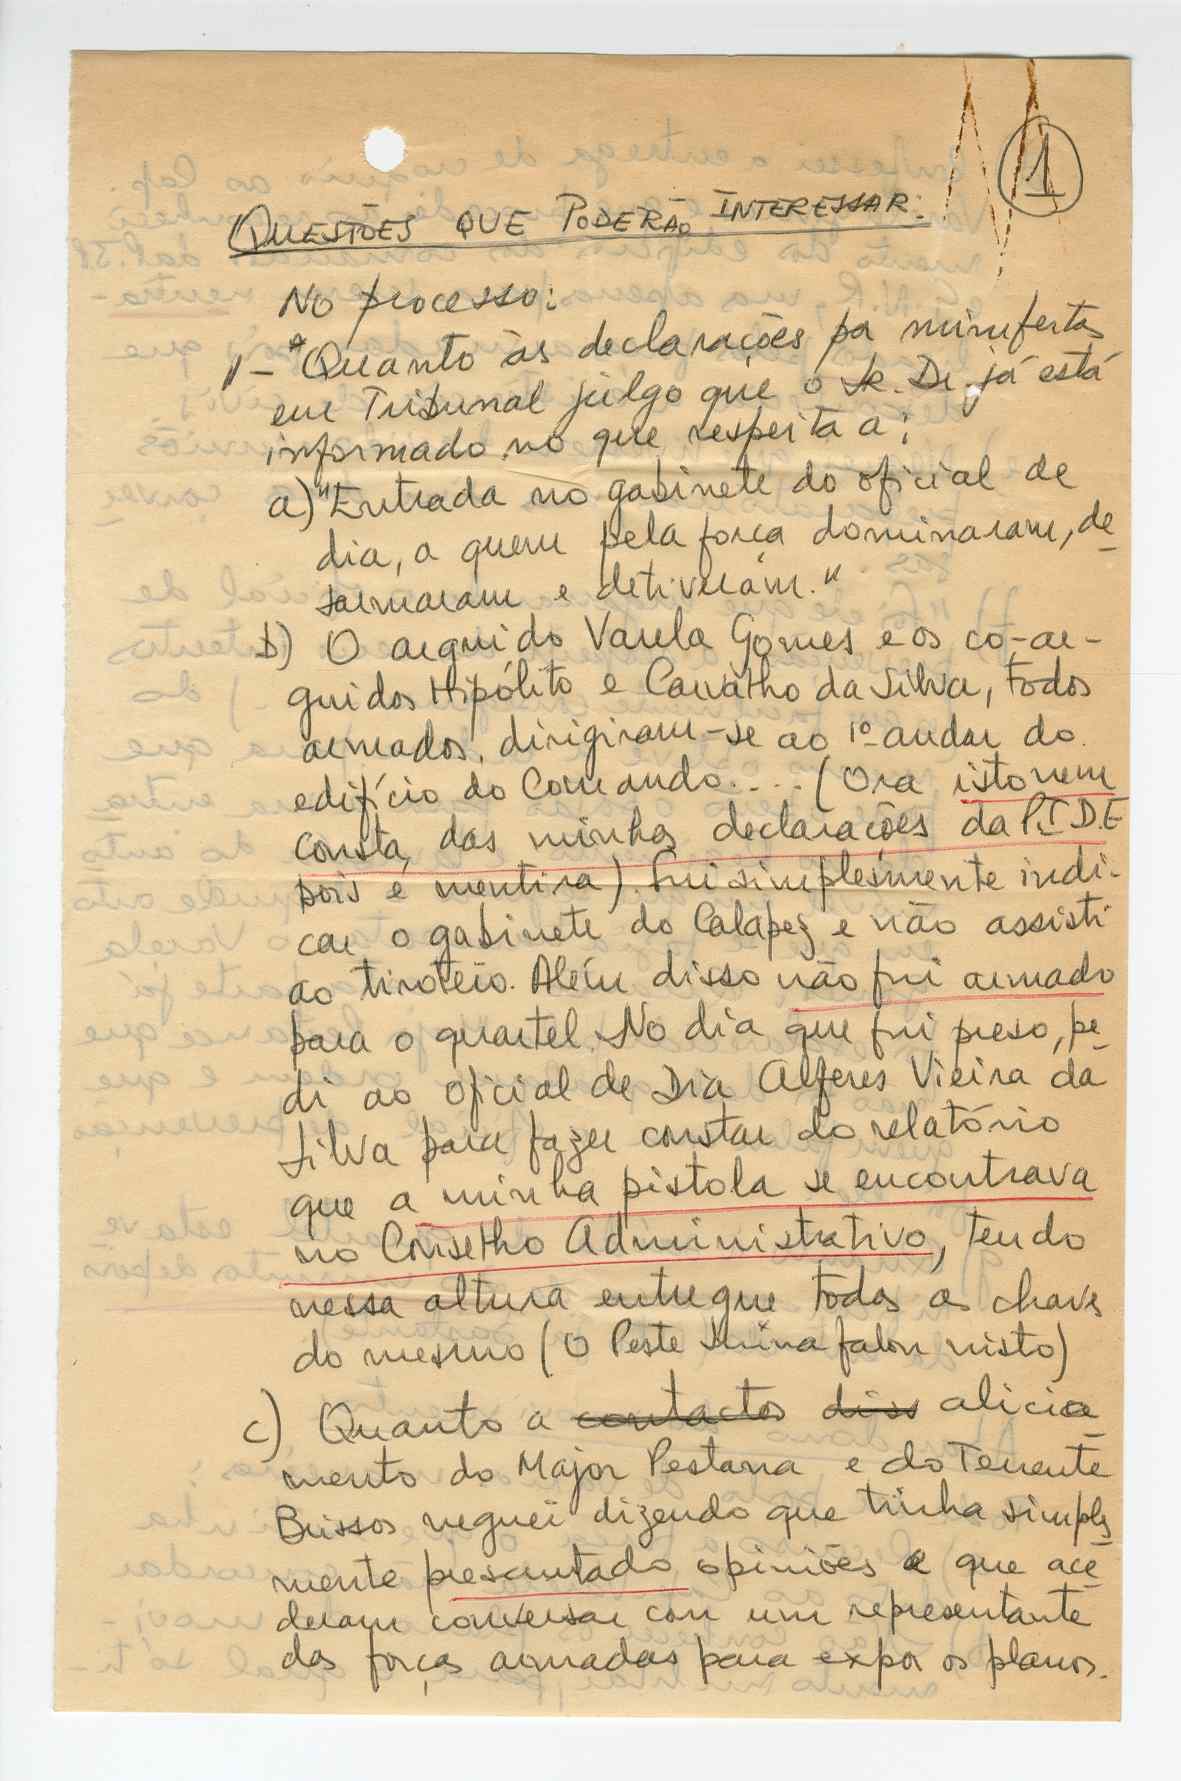 1
QUESTÕES QUE PODERÃO INTERESSAR:
No processo:
1- "Quanto às declarações pa mim feitas
em Tribunal julgo que o Sr. Dr. já está
informado no que respeita a:
a) "Entrada no gabinete do oficial de
dia, a quem pela força dominaram, de-
sarmaram e detiveram."
b) O arguido Varela Gomes e os co-ar-
guidos Hipólito e Carvalho da Silva, todos
armados, dirigiram-se ao 1º andar do
edifício do Comando.... (Ora isto nem
consta, das minhas declarações da P.I.D.E
pois é mentira). Fui simplesmente indi-
car o gabinete do Calapez e não assisti
ao tiroteio. Além disso não fui armado
para o quartel. No dia que fui preso, pe-
di ao oficial de Dia Alferes Vieira da
Silva para fazer constar do relatório
que a minha pistola se encontrava
no Conselho Administrativo, tendo
nessa altura entregue todas as chaves
do mesmo (O Peste falou nisto)
c) Quanto a contactos diss alicia-
mento do Major Pestana e do Tenente
Brissos neguei dizendo que tinha simples-
mente prescrutado opiniões e que ace-
deram conversar com um representante
das forças armadas para expor os planos.